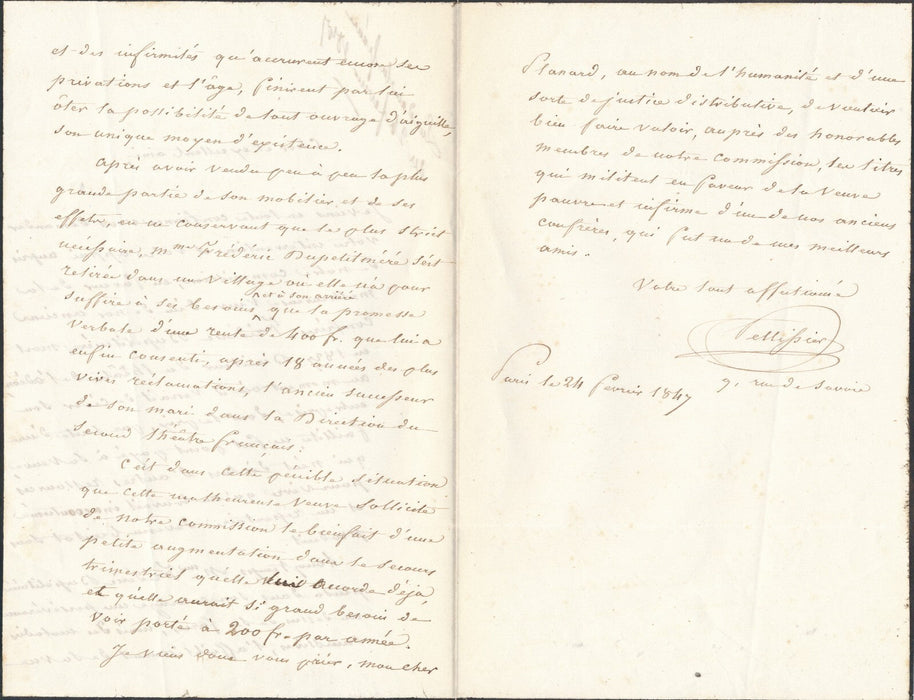 et des infirmités qu'accrurent encore ses
privations et l'âge, finirent par lui
ôter la possibilité de tout ouvrage d'aiguille,
son unique moyen d'existence.
Après avoir vendu peu à peu la plus
grande partie de son mobilier, et de ses
effets, en ne conservant que le plus strict
nécessaire, Mme Frédéric Dupetitméré s'est
retirée dans un village où elle n'a pour
suffire à ses besoins et à son arriéré que la promesse
verbale d'une rente de 400 fr. que lui a
enfin consenti, après 18 années des plus
vives réclamations, l'ancien successeur
de son mari dans la Direction du
second théâtre français.
C'est dans cette pénible situation
que cette malheureuse veuve sollicite
de notre commission le bienfait d'une
petite augmentation dans le secours
trimestriel qu'elle lui accorde déjà,
et qu'elle aurait si grand besoin de
voir porté à 200 fr. par année.
Je viens donc vous prier, mon cher
Planard, au nom de l'humanité et d'une
sorte de justice distributive, de vouloir
bien faire valoir, auprès des honorables
membres de notre Commission, les titres
qui militent en faveur de la veuve
pauvre et infirme d'un de nos anciens
confrères, qui fut un de mes meilleurs
amis.
Votre tout affectionné
Pellissier
9, rue de Savoie
Paris le 24 février 1847